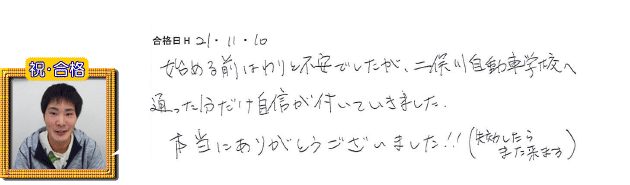 祝・合格
合格日 H 21・11・10
始める前はわりと不安でしたが、二俣川自動車学校へ
通った分だけ自信が付いていきました.
本当にありがとうございました!!(失効したら
また来ます)